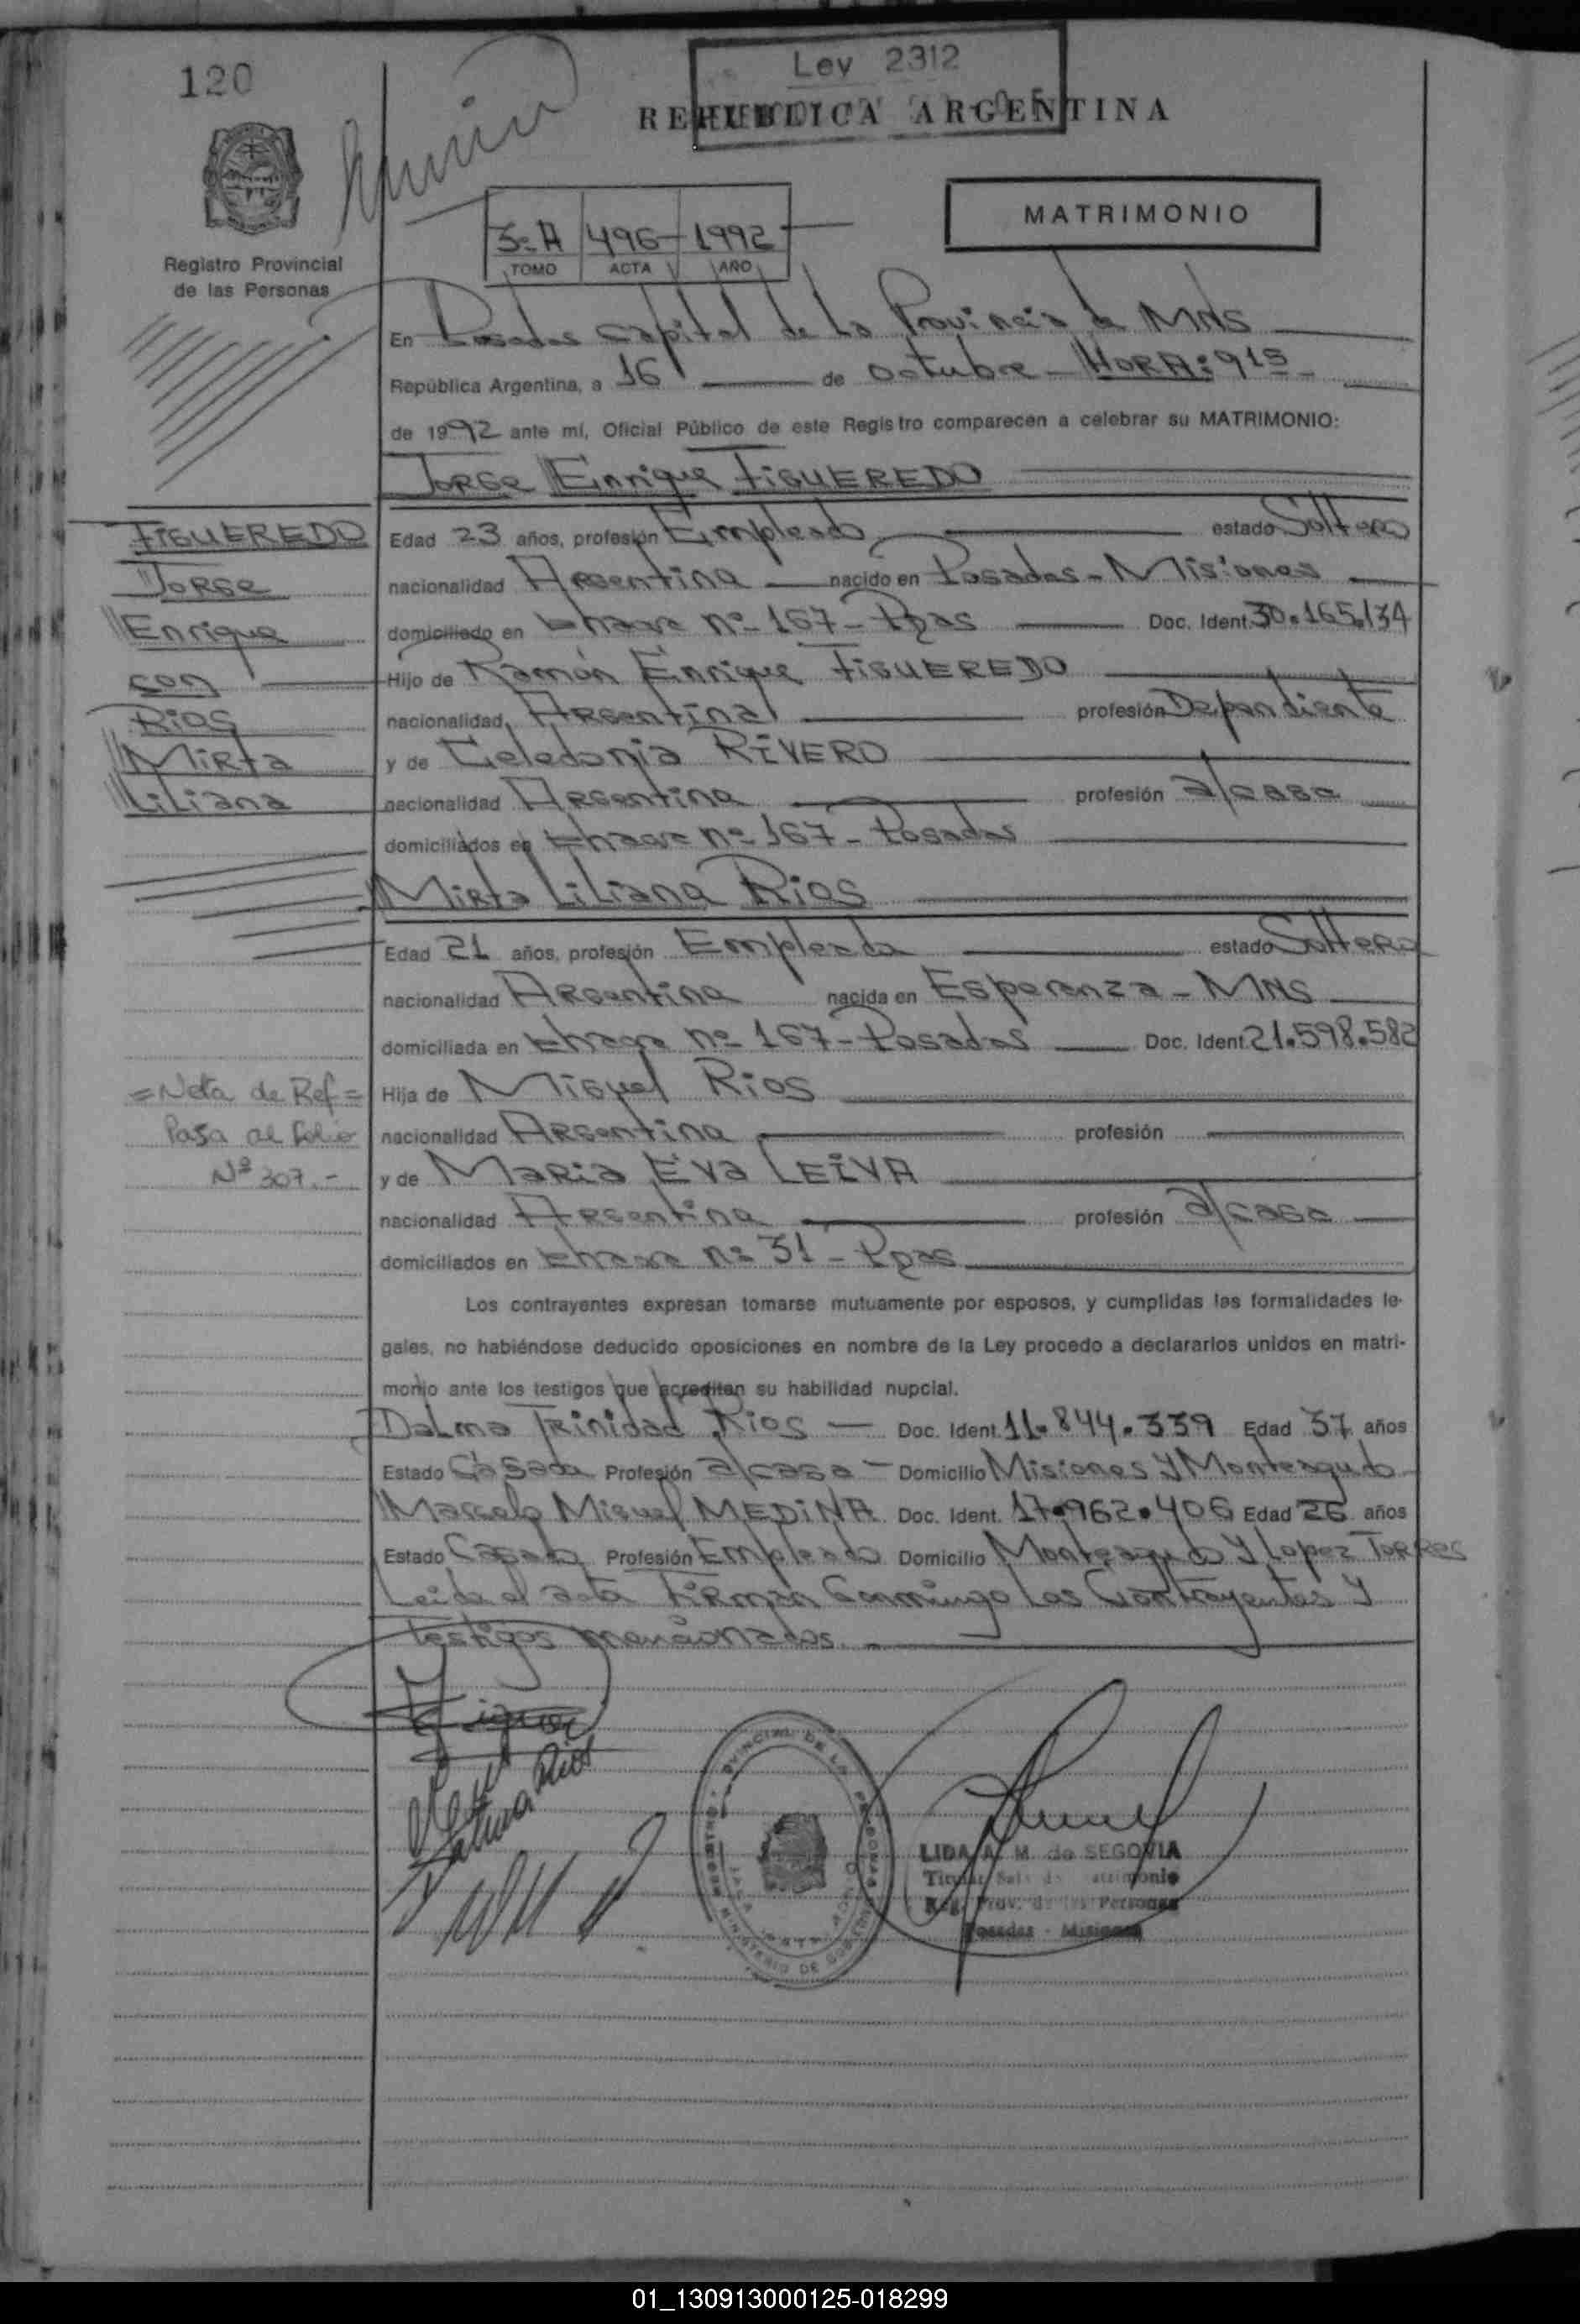 120
Ley 2312
REPUBLICA ARGENTINA
MATRIMONIO
3-A 496 1992
TOMO ACTA AÑO
Registro Provincial
de las Personas
En Posadas Capital de La Provincia de MNS
República Argentina, a 16 de octubre - HORA: 9 15
de 1992 ante mí, Oficial Público de este Registro comparecen a celebrar su MATRIMONIO:
Jorge Enrique FIGUEREDO
FIGUEREDO
Jorge
Enrique
con
Rios
Mirta
Liliana
Edad 23 años, profesión Empleado estado Soltero
nacionalidad Argentina nacido en Posadas - Misiones
domiciliado en nº 167 - Pdas Doc. Ident. 30.165.134
Hijo de Ramón Enrique FIGUEREDO
nacionalidad Argentina profesión Dependiente
y de Celedonia RIVERO
nacionalidad Argentina profesión a/casa
domiciliados en nº 167 - Posadas
Mirta Liliana Rios
Edad 21 años, profesión Empleada estado Soltera
nacionalidad Argentina nacida en Esperanza - MNS
domiciliada en nº 167 - Posadas Doc. Ident. 21.598.582
= Nota de Ref =
Pasa al folio
Nº 307.-
Hija de Miguel Rios
nacionalidad Argentina profesión
y de Maria Eva LEIVA
nacionalidad Argentina profesión a/casa
domiciliados en nº 31 - Pdas
Los contrayentes expresan tomarse mutuamente por esposos, y cumplidas las formalidades le-
gales, no habiéndose deducido oposiciones en nombre de la Ley procedo a declararlos unidos en matri-
monio ante los testigos que acreditan su habilidad nupcial.
Dalma Trinidad Rios — Doc. Ident. 11.844.339 Edad 37 años
Estado Casada Profesión a/casa - Domicilio Misiones y Monteagudo
Marcelo Miguel MEDINA Doc. Ident. 17.962.406 Edad 26 años
Estado Casado Profesión Empleado Domicilio Monteagudo y Lopez Torres
Leida el acta firman conmigo los Contrayentes y
testigos mencionados.
LIDA A. M. de SEGOVIA
Reg. Prov. de las Personas
Posadas - Misiones
01_130913000125-018299